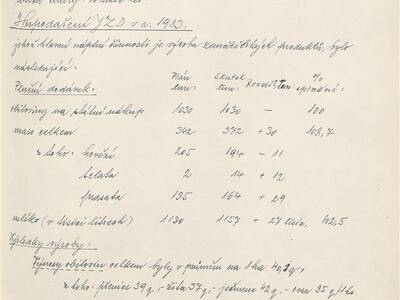 Hospodaření JZD v r. 1983.
jehož hlavní náplní činnosti je výroba zemědělských produktů, bylo
následující.
Plán tun. Skutek tun. Rozdíl tun % splnění:
Plnění dodávek.
obiloviny na státní nákup 1030 1030 — 100
maso celkem 342 372 + 30 108,7
z toho - hovězí 205 194 - 11
telata 2 14 + 12
prasata 135 164 + 29
mléko (v tisíci litrech) 1130 1157 + 27 tisíc. 102,5
Výsledky výroby.
Výnosy obilovin celkem byly v průměru na 1 ha
z toho - pšenice 39 q - žita 37 q - ječmene 42 q - ovsa 35 q/1 ha.